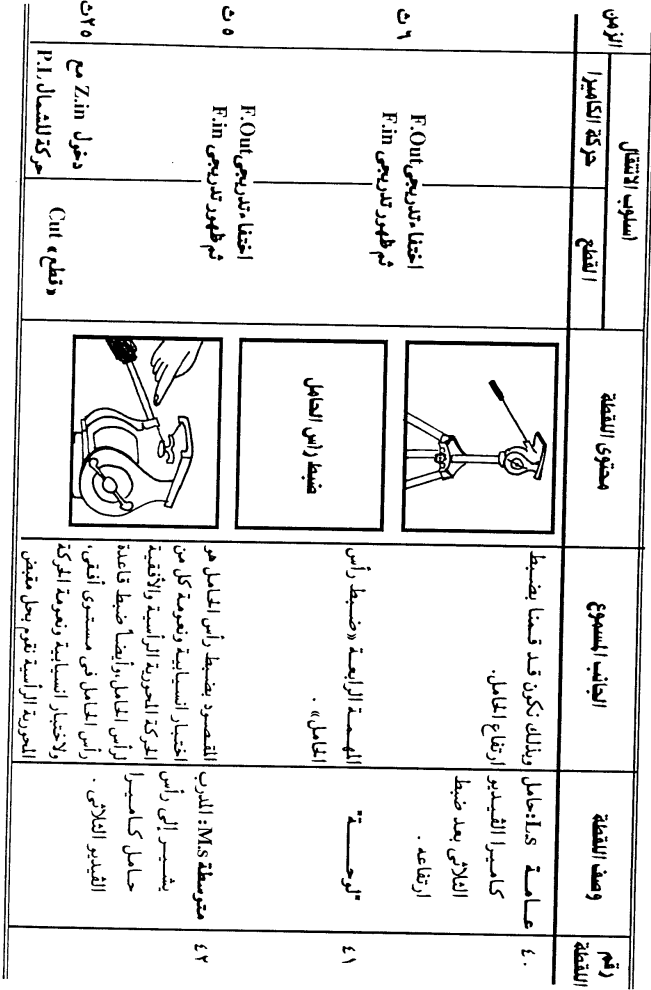 رقم
اللقطة
وصف اللقطة
الجانب المسموع
محتوى اللقطة
اسلوب الانتقال
القطع
حركة الكاميرا
الزمن
٤٠
عــامــة L.s: حامل
كاميرا الفيديو
الثلاثى بعد ضبط
ارتفاعه .
وبذلك نكون قد قمنا بضبط
ارتفاع الحامل.
اختفاء تدريجى F.Out
ثم ظهور تدريجى F.in
٦ ث
٤١
"لوحــــة"
المهمة الرابعة «ضبط رأس
الحامل» .
ضبط رأس الحامل
اختفاء تدريجى F.Out
ثم ظهور تدريجى F.in
٥ ث
٤٢
متوسطة M.s: المدرب
يشير إلى رأس
حامل كاميرا
الفيديو الثلاثى .
المقصود بضبط رأس الحامل هو
اختبار انسيابية ونعومة كل من
الحركة المحورية الرأسية والأفقية
لرأس الحامل، وأيضاً ضبط قاعدة
رأس الحامل فى مستوى أفقى،
ولاختبار انسيابية ونعومة الحركة
المحورية الرأسية نقوم بحل مقبض
«قطع» Cut
دخول Z.in مع
حركة للشمال P.L
٢٥ث